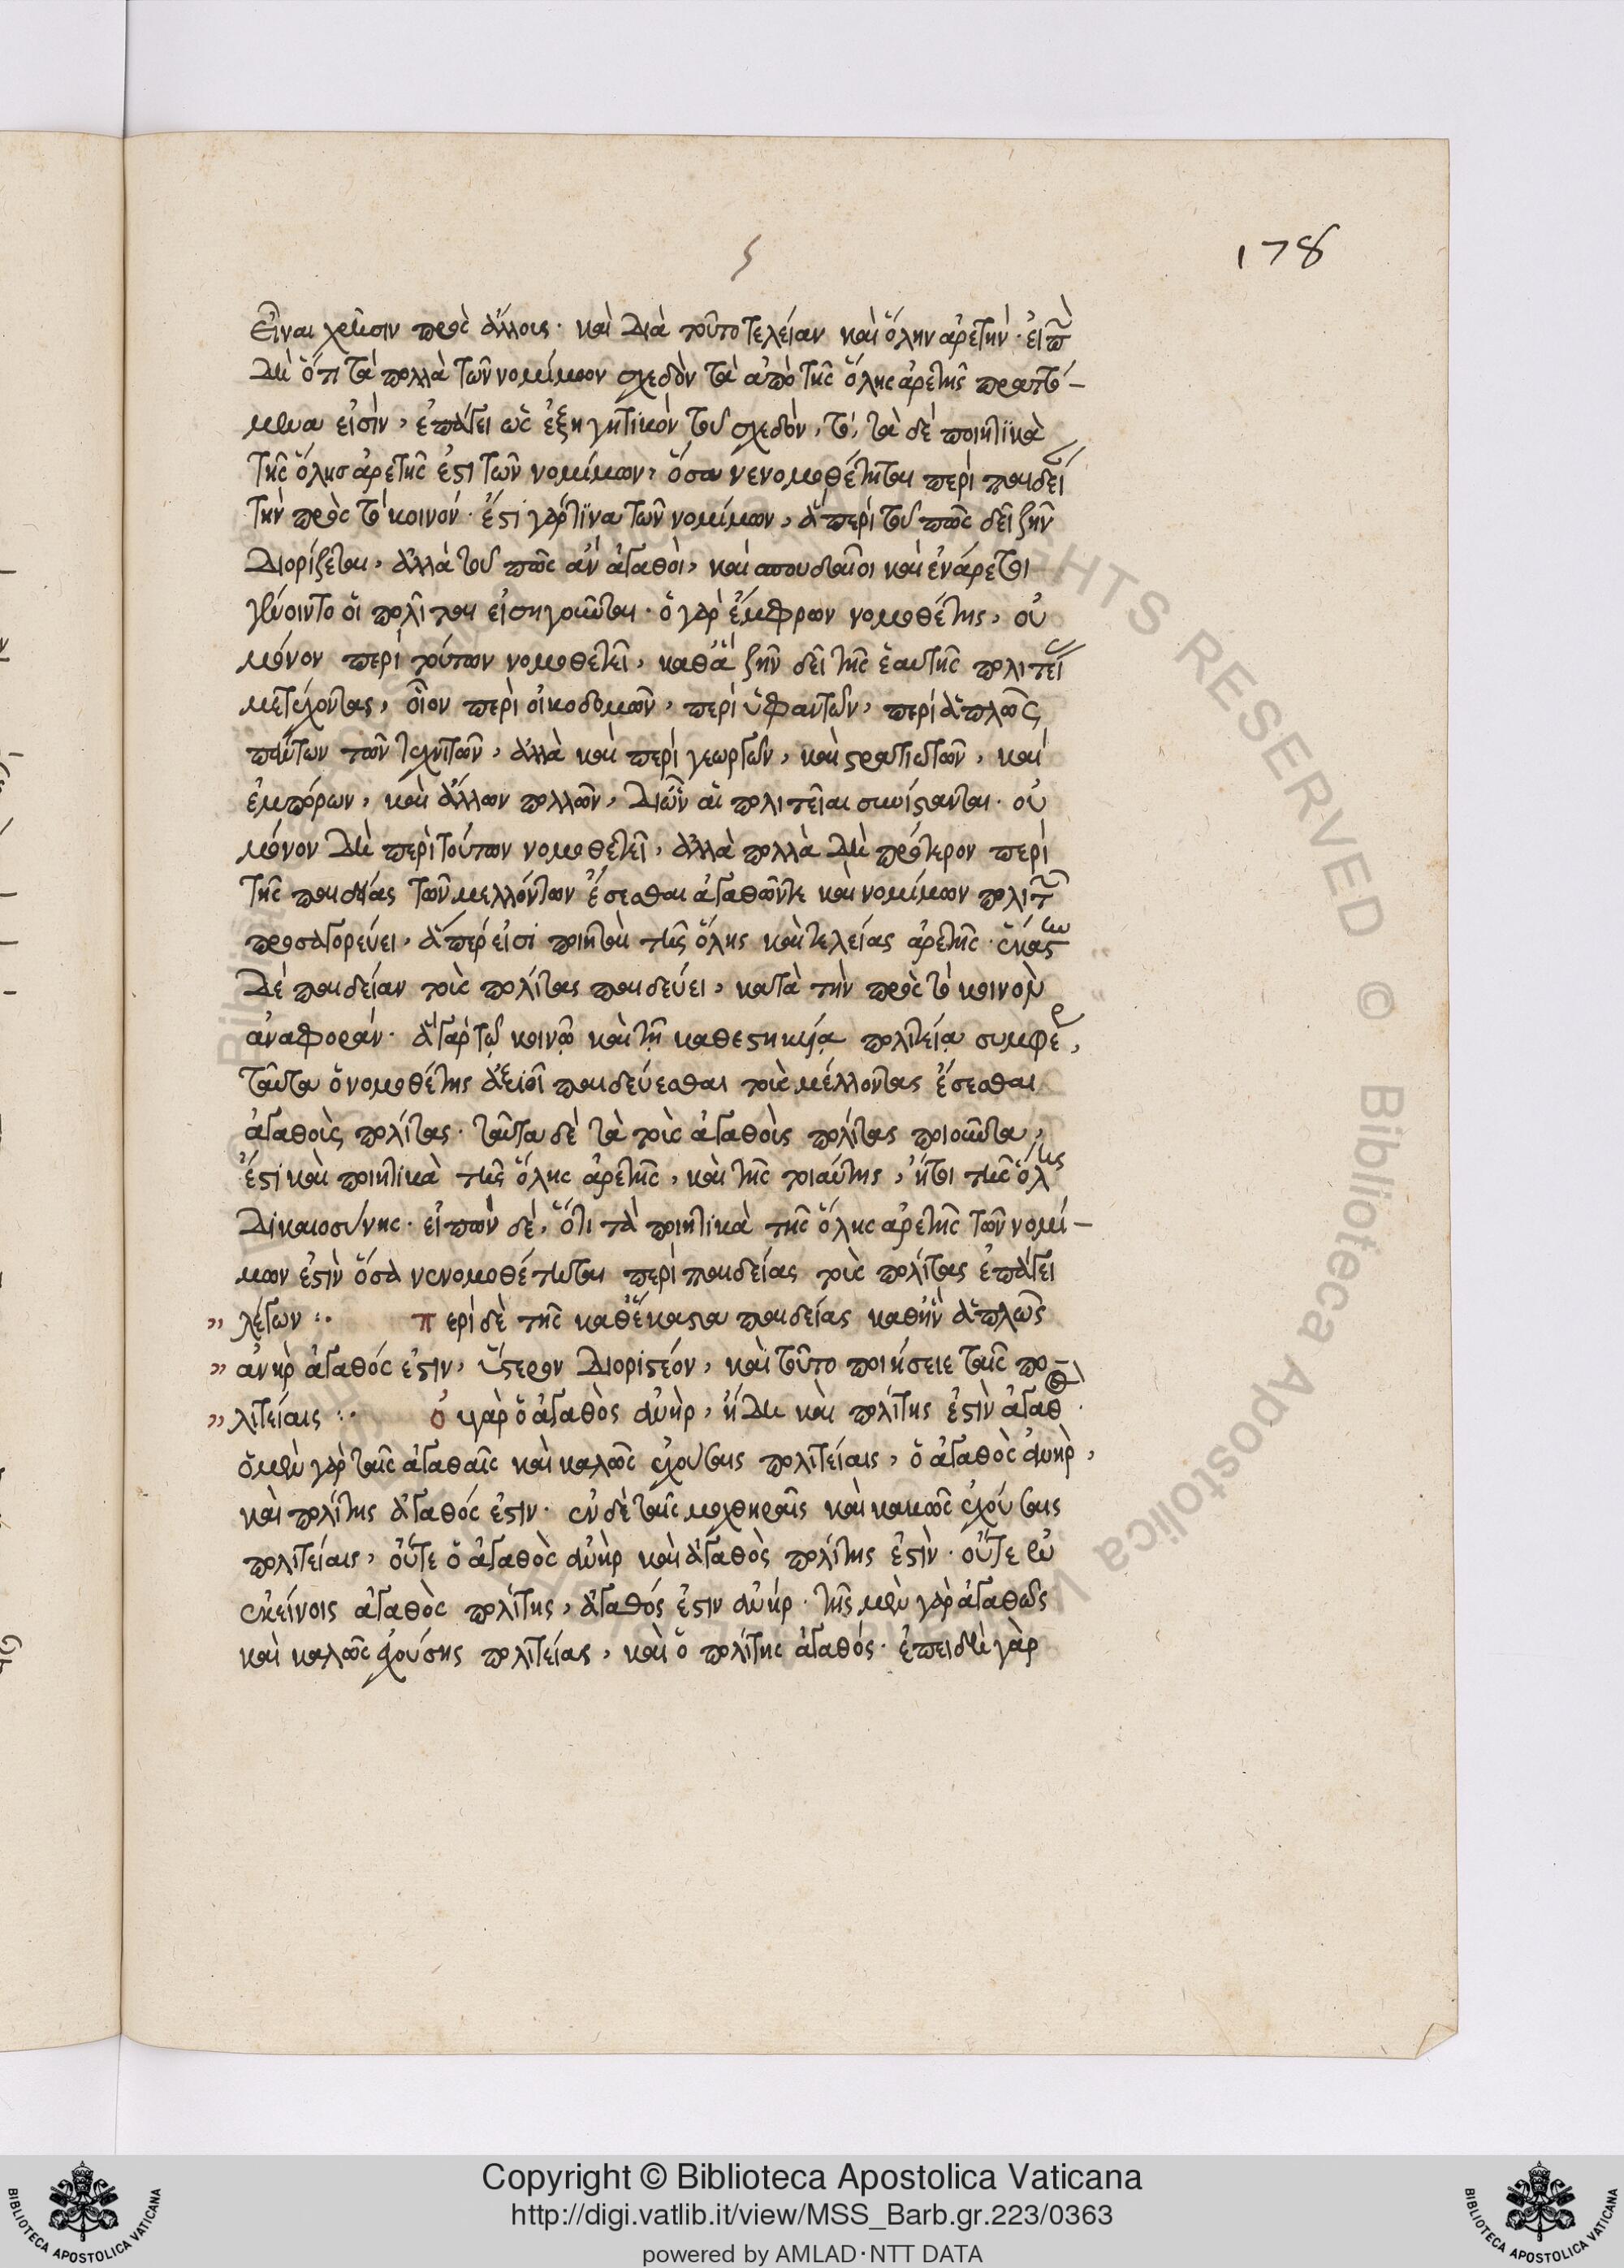 178
εἶναι χρῆσιν πρὸς ἄλλους· καὶ διὰ τοῦτο τελείαν καὶ ὅλην ἀρετήν· εἰπὼ
δὲ ὅτι τὰ πολλὰ τῶν νομίμων σχεδὸν τὰ ἀπὸ τῆς ὅλης ἀρετῆς πραττό-
μενα εἰσὶν, ἐπάγει ὡς ἐξηγητϊκὸν τοῦ σχεδὸν, τό, τὰ δὲ ποιητϊκὰ
τῆς ὅλης ἀρετῆς ἐστι τῶν νομίμων, ὅσα νενομοθέτηται περὶ παιδεί
τὴν πρὸς τὸ κοινόν· ἔστι γάρ τϊνα τῶν νομίμων, ἃ περὶ τοῦ πῶς δεῖ ζῆν
διορίζεται, ἀλλὰ τοῦ πῶς ἂν ἀγαθοὶ, καὶ σπουδαῖοι καὶ ἐνάρετοι
γένοιντο οἱ πολῖται εἰσηγοῦνται· ὁ γὰρ ἔμφρων νομοθέτης, οὐ
μόνον περὶ τούτων νομοθετεῖ, καθὰ ζῆν δεῖ τῆς ἑαυτῆς πολιτεί
μετέχοντας, οἷον περὶ οἰκοδόμων, περὶ ὑφαντῶν, περὶ ἁπλῶς
πάντων τῶν τεχνιτῶν, ἀλλὰ καὶ περὶ γεωργῶν, καὶ στρατιωτῶν, καὶ
ἐμπόρων, καὶ ἄλλων πολλῶν, δι ὧν αἱ πολιτεῖαι συνίστανται· οὐ
μόνον δὲ περὶ τούτων νομοθετεῖ, ἀλλὰ πολλὰ δὲ πρότερον περὶ
τῆς παιδείας τῶν μελλόντων ἔσεσθαι ἀγαθῶν τε καὶ νομίμων πολιτ
προσαγορεύει, ἅπερ εἰσὶ ποιητικὰ τῆς ὅλης καὶ τελείας ἀρετῆς·
δὲ παιδείαν τοὺς πολίτας παιδεύει, κατὰ τὴν πρὸς τὸ κοινὸν
ἀναφοράν· ἃ γὰρ τῷ κοινῷ καὶ τῇ καθεστηκυίᾳ πολιτείᾳ συμφέρ,
ταῦτα ὁ νομοθέτης ἀξιοῖ παιδεύεσθαι τοὺς μέλλοντας ἔσεσθαι
ἀγαθοὺς πολίτας· ταῦτα δὲ τὰ τοὺς ἀγαθοὺς πολίτας ποιοῦντα,
ἐστὶ καὶ ποιητικὰ τῆς ὅλης ἀρετῆς, καὶ τῆς τοιαύτης, ἤτοι τῆς ὅλης
δικαιοσύνης· εἰπὼν δὲ, ὅτι τὰ ποιητικὰ τῆς ὅλης ἀρετῆς τῶν νομί-
μων ἐστὶν ὅσα νενομοθέτηται περὶ παιδείας τοὺς πολίτας ἐπάγει
" λέγων :· περὶ δὲ τῆς καθ ἕκαστα παιδείας καθ ἣν ἁπλῶς
" ἀνὴρ ἀγαθός ἐστιν, ὕστερον διοριστέον, καὶ τοῦτο ποιήσειε ταῖς πο-
" λιτείαις :· ὁ γὰρ ὁ ἀγαθὸς ἀνὴρ, ἤδη καὶ πολίτης ἐστὶν ἀγαθὸ·
ὁ μὲν γὰρ ταῖς ἀγαθαῖς καὶ καλῶς ἐχούσαις πολιτείαις, ὁ ἀγαθὸς ἀνὴρ,
καὶ πολίτης ἀγαθός ἐστιν· ἐν δὲ ταῖς μοχθηραῖς καὶ κακῶς ἐχούσαις
πολιτείαις, οὔτε ὁ ἀγαθὸς ἀνὴρ καὶ ἀγαθὸς πολίτης ἐστὶν· οὔτε ἐν
ἐκείνοις ἀγαθὸς πολίτης, ἀγαθός ἐστιν ἀνήρ· τῆς μὲν γὰρ ἀγαθῶς
καὶ καλῶς ἐχούσης πολιτείας, καὶ ὁ πολίτης ἀγαθός· ἐπειδὴ γὰρ
Copyright © Biblioteca Apostolica Vaticana
http://digi.vatlib.it/view/MSS_Barb.gr.223/0363
powered by AMLAD·NTT DATA